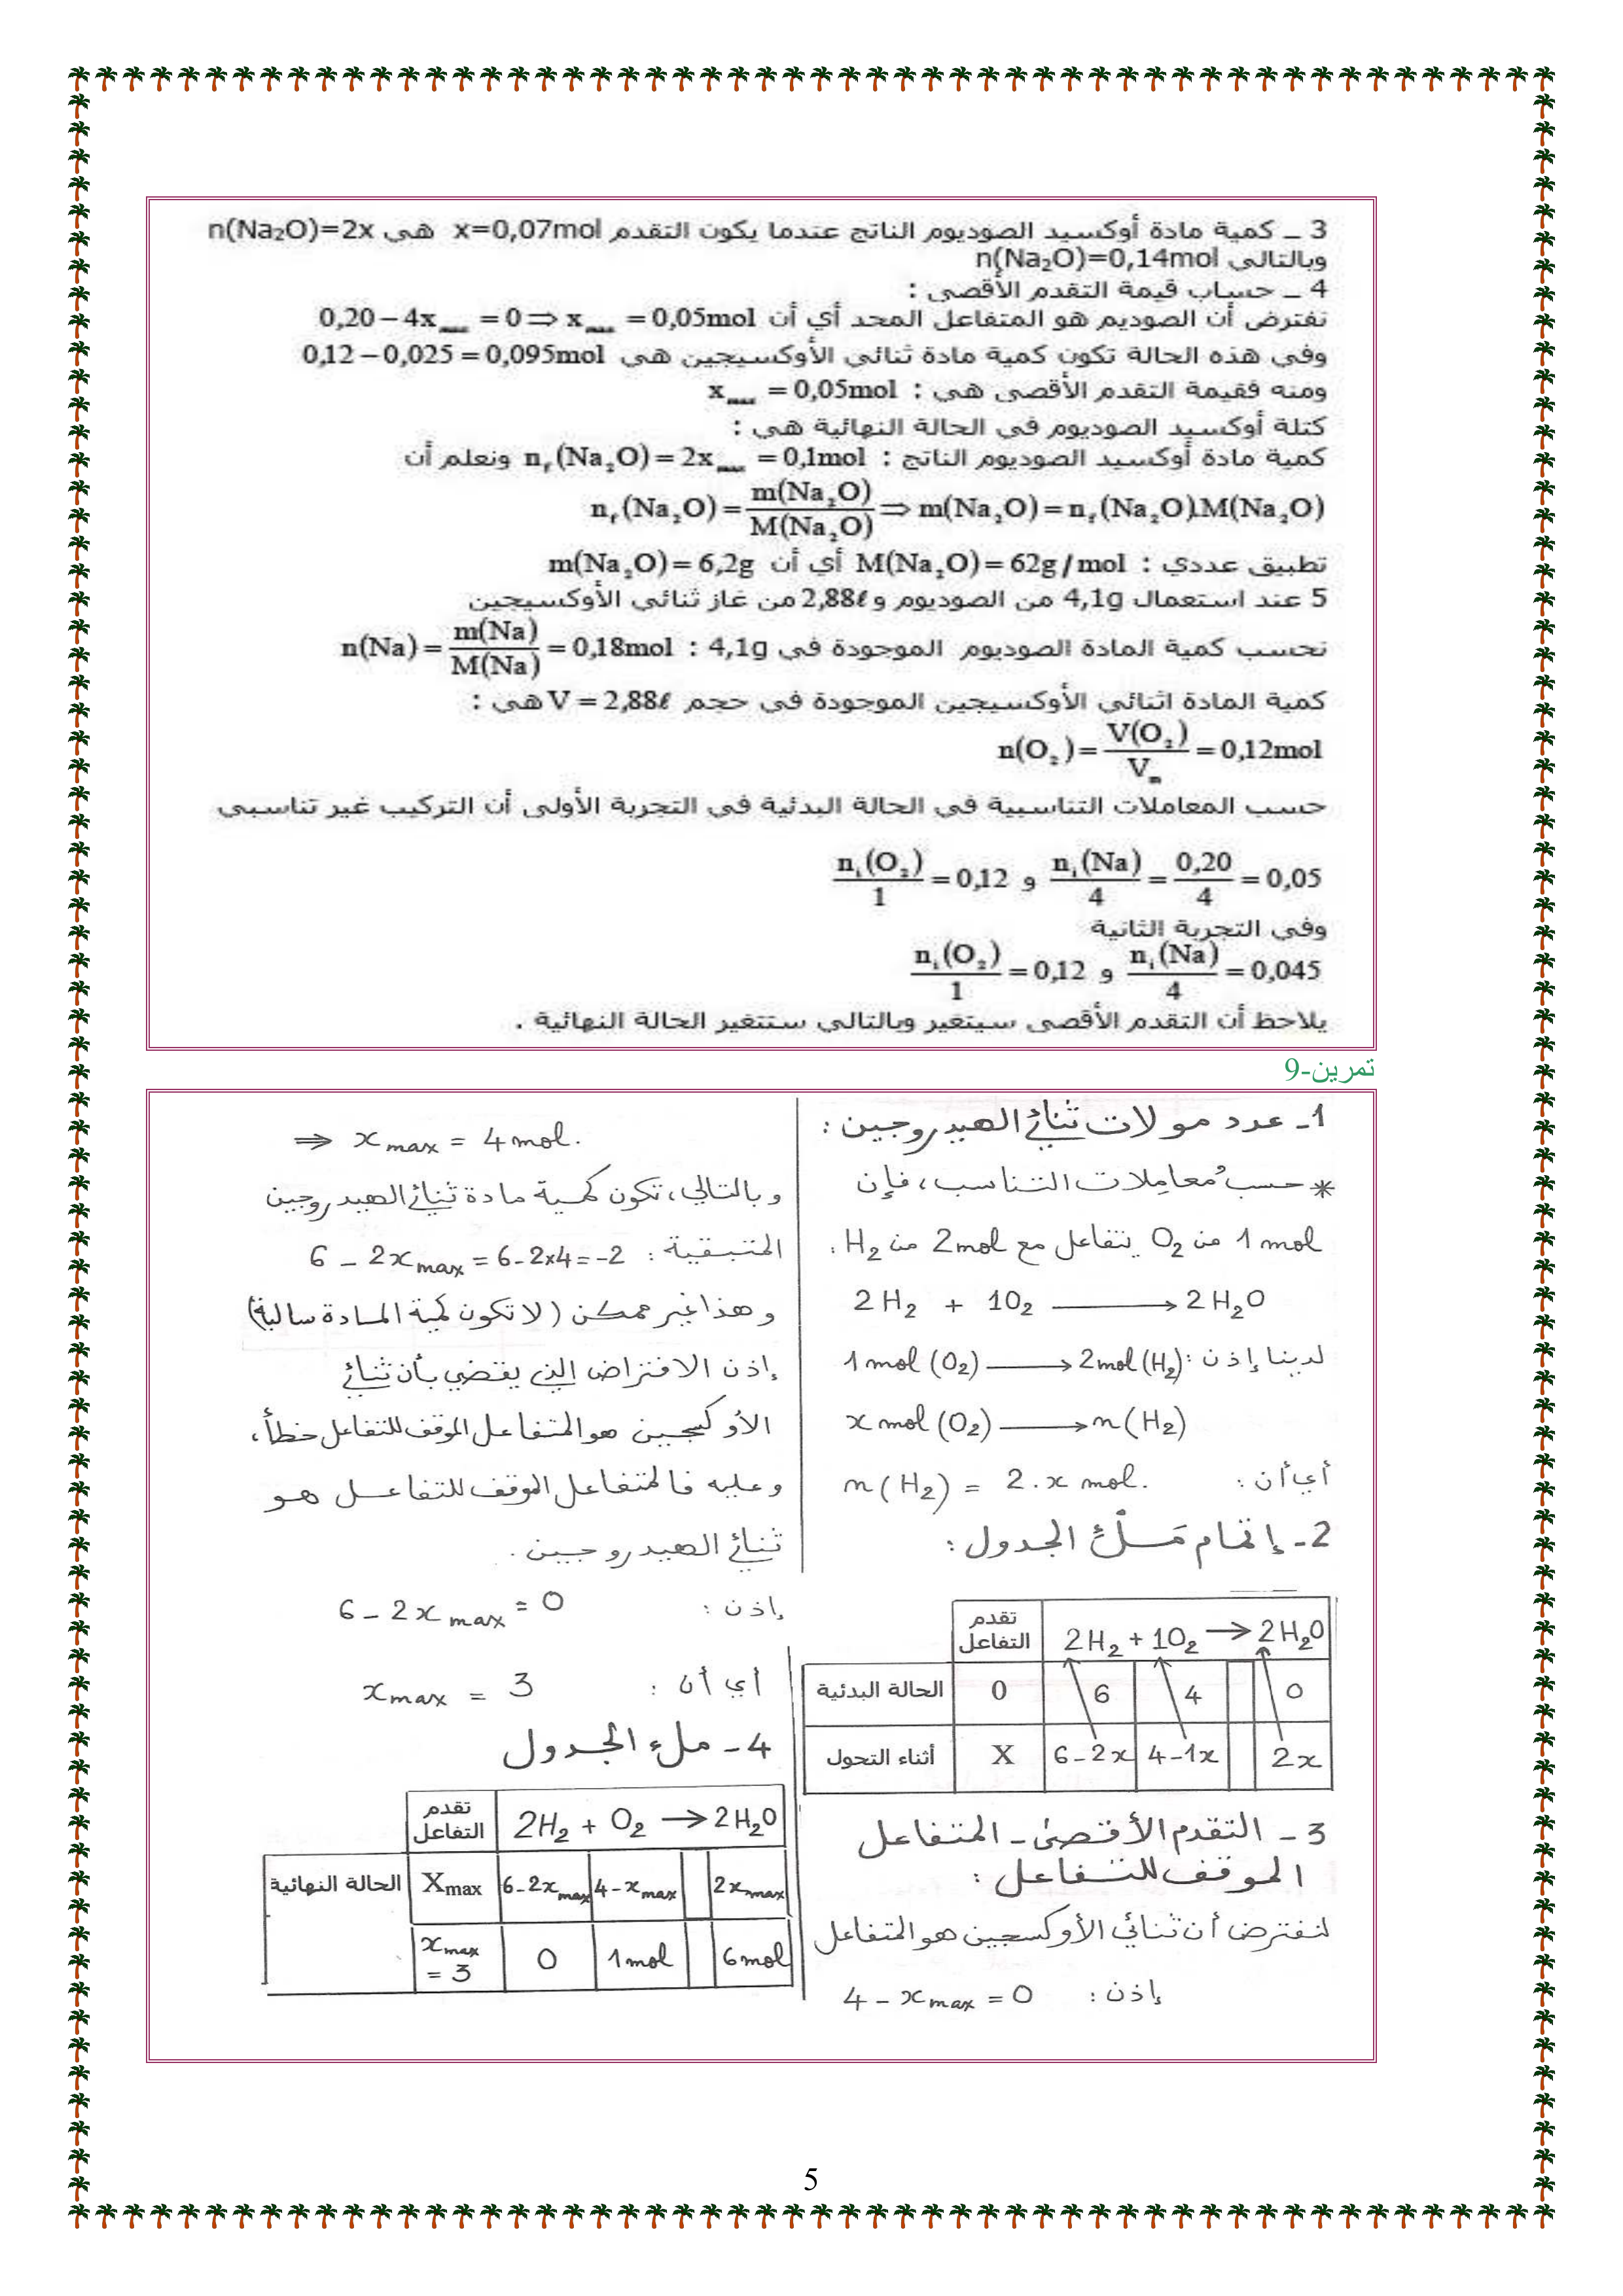 3 ـ كمية مادة أوكسيد الصوديوم الناتج عندما يكون التقدم x=0,07mol هي n(Na₂O)=2x
وبالتالي n(Na₂O)=0,14mol
4 ـ حساب قيمة التقدم الأقصى :
نفترض أن الصوديم هو المتفاعل المحد أي أن 0,20−4x_max = 0 ⇒ x_max = 0,05mol
وفي هذه الحالة تكون كمية مادة ثنائي الأوكسيجين هي 0,12−0,025 = 0,095mol
ومنه فقيمة التقدم الأقصى هي : x_max = 0,05mol
كتلة أوكسيد الصوديوم في الحالة النهائية هي :
كمية مادة أوكسيد الصوديوم الناتج : n_f(Na₂O) = 2x_max = 0,1mol ونعلم أن
n_f(Na₂O) = m(Na₂O)/M(Na₂O) ⇒ m(Na₂O) = n_f(Na₂O).M(Na₂O)
تطبيق عددي : M(Na₂O) = 62g/mol أي أن m(Na₂O) = 6,2g
5 عند استعمال 4,1g من الصوديوم و 2,88ℓ من غاز ثنائي الأوكسيجين
نحسب كمية المادة الصوديوم الموجودة في 4,1g : n(Na) = m(Na)/M(Na) = 0,18mol
كمية المادة اثنائي الأوكسيجين الموجودة في حجم V = 2,88ℓ هي :
n(O₂) = V(O₂)/V_m = 0,12mol
حسب المعاملات التناسبية في الحالة البدئية في التجربة الأولى أن التركيب غير تناسبي
n_i(Na)/4 = 0,20/4 = 0,05 و n_i(O₂)/1 = 0,12
وفي التجربة الثانية
n_i(Na)/4 = 0,045 و n_i(O₂)/1 = 0,12
يلاحظ أن التقدم الأقصى سيتغير وبالتالي ستتغير الحالة النهائية .
تمرين-9
1- عدد مولات ثنائي الهيدروجين :
* حسب مُعامِلات التناسب، فإن
1 mol من O₂ يتفاعل مع 2mol من H₂ :
2H₂ + 1O₂ ⟶ 2H₂O
لدينا إذن : 1mol (O₂) ⟶ 2mol (H₂)
x mol (O₂) ⟶ n (H₂)
أي أن : n (H₂) = 2.x mol.
2- إتمام مَلْءُ الجدول :
تقدم التفاعل 2H₂ + 1O₂ → 2H₂O
الحالة البدئية 0 6 4 0
أثناء التحول X 6-2x 4-1x 2x
3- التقدم الأقصى - المتفاعل
الموقف للتفاعل :
لنفترض أن ثنائي الأوكسجين هو المتفاعل
إذن : 4 - x_max = 0
⇒ x_max = 4mol.
و بالتالي، تكون كمية مادة ثنائي الهيدروجين
المتبقية : 6 - 2x_max = 6-2×4 = -2
و هذا غير ممكن (لا تكون كمية المادة سالبة)
إذن الافتراض الذي يقضي بأن ثنائي
الأوكسجين هو المتفاعل الموقف للتفاعل خطأ،
و عليه فالمتفاعل الموقف للتفاعل هو
ثنائي الهيدروجين .
إذن : 6 - 2x_max = 0
أي أن : x_max = 3
4- ملء الجدول
تقدم التفاعل 2H₂ + O₂ → 2H₂O
الحالة النهائية X_max 6-2x_max 4-x_max 2x_max
x_max = 3 0 1mol 6mol
5